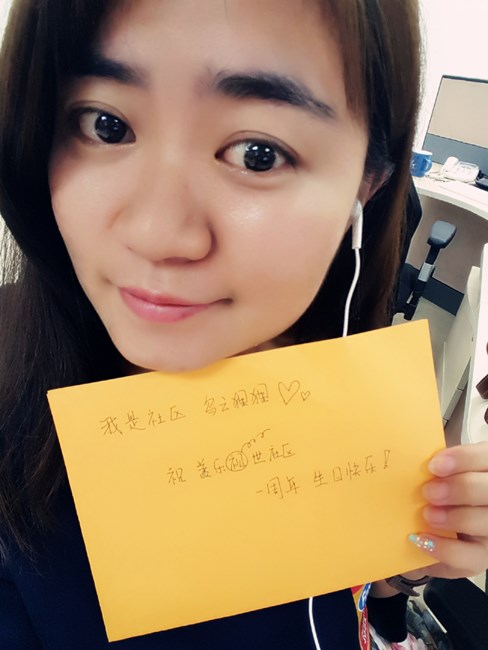 我是社区 乌云
祝 盖乐世社区
一周年 生日快乐！